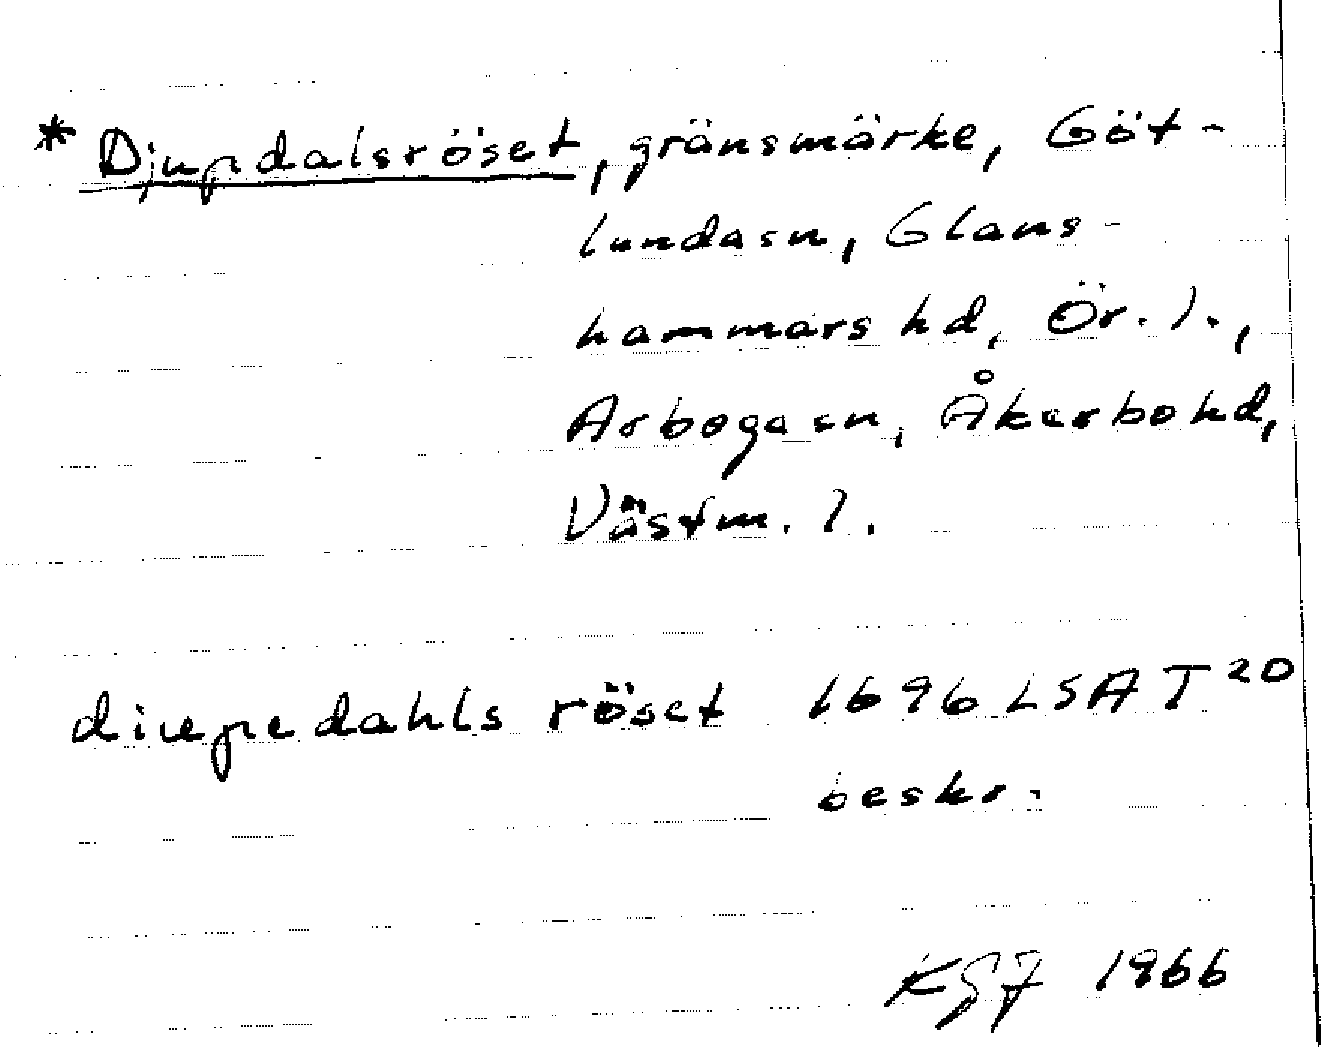 * Djupdalsröset, gränsmärke, Göt-
lunda sn, Glans-
hammars hd, Ör. l.,
Arboga sn, Åkerbo hd,
Västm. l.
diupedahls röset 1696 LSA T 20
beskr.
KGJ 1966